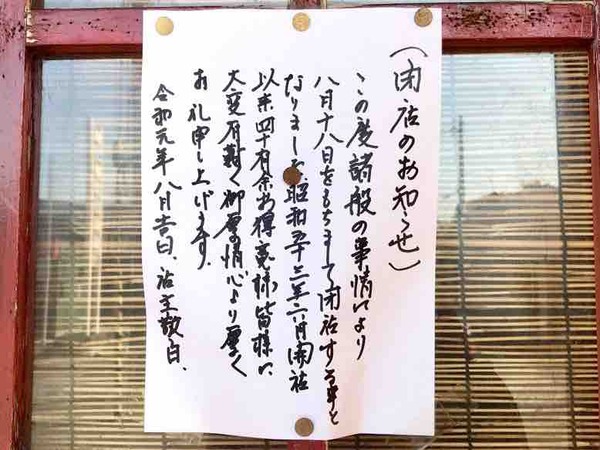 (閉店のお知らせ)
この度諸般の事情により
八月十八日をもちまして閉店する事と
なりました。昭和五十三年六月開店
以来四十有余お得意様皆様に
大変有難く御厚情心より厚く
お礼申し上げます。
令和元年八月吉日、店主敬白、